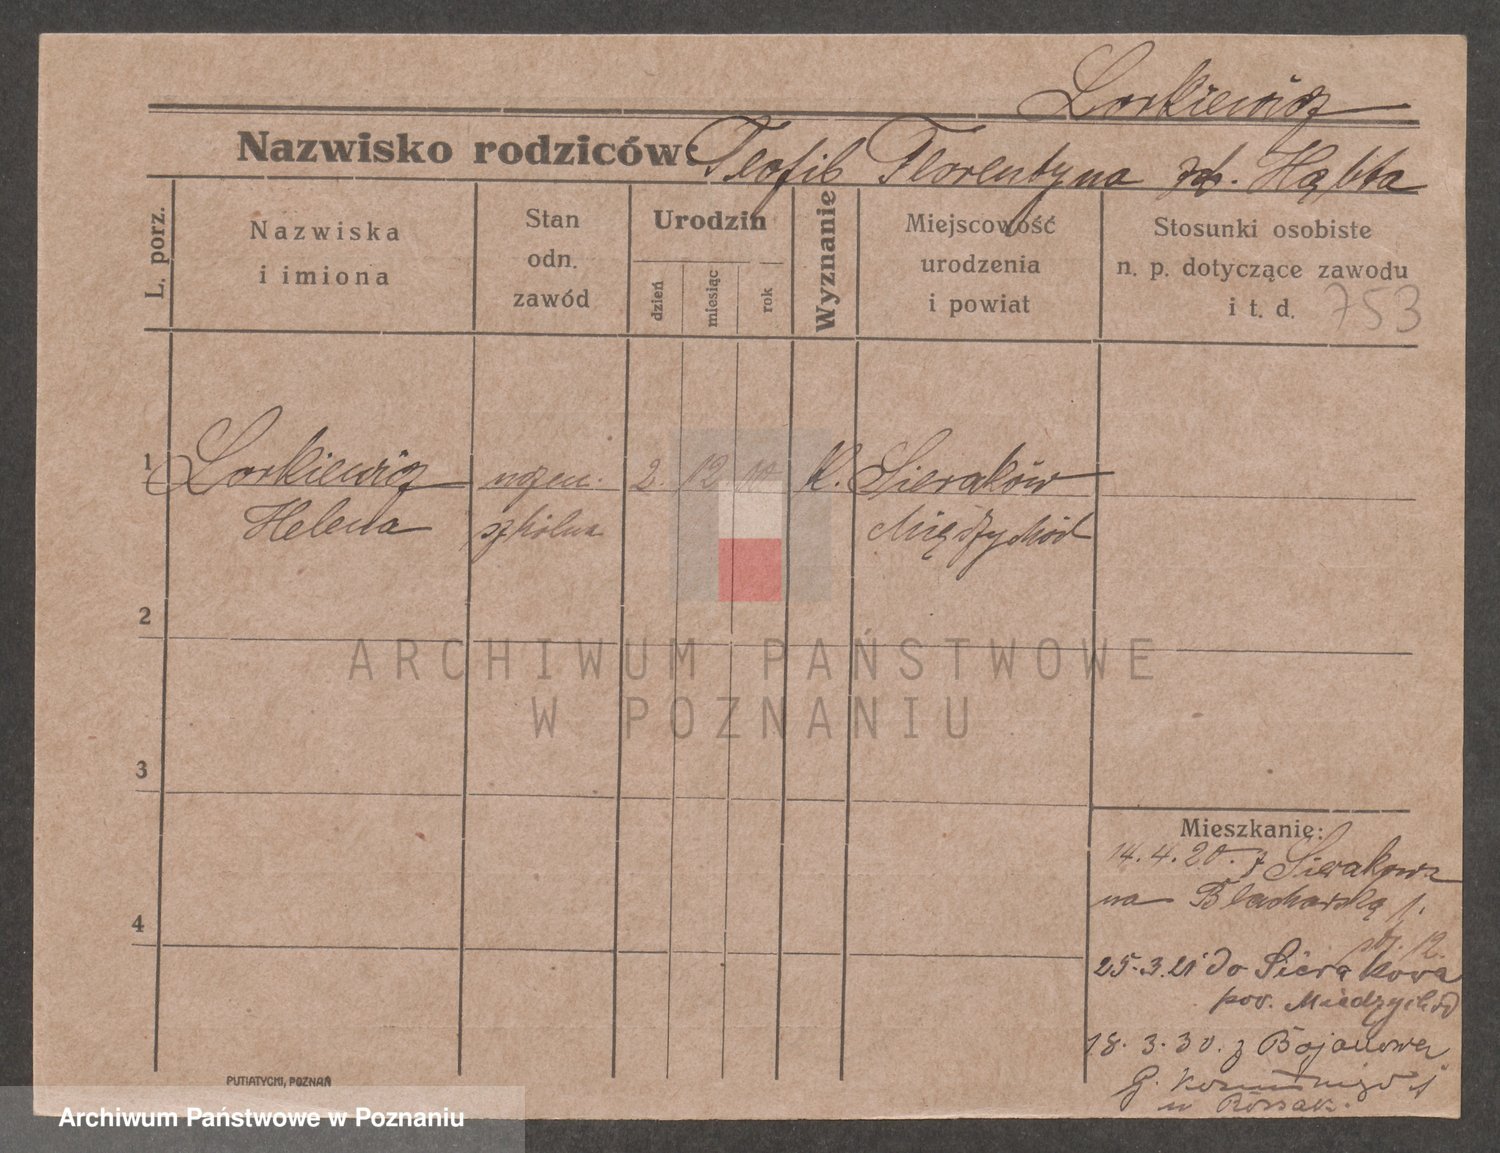 Lorkiewicz
Nazwisko rodziców: Teofil Florentyna
L. porz.
Nazwiska
i imiona
Stan
odn.
zawód
Urodzin
dzień
miesiąc
rok
Wyznanie
Miejscowość
urodzenia
i powiat
Stosunki osobiste
n. p. dotyczące zawodu
i t. d. 753
1 Lorkiewicz
Helena
uczen.
szkolna
2. 12 10
K. Sieraków
Międzychód
2
3
4
Mieszkanie:
14.4.20. z Sierakowa
na Blacharską 1.
25.3.21 do Sierakowa
pow. Miedzychód
18.3.30. z Bojanowa
G.
u
PUTIATYCKI, POZNAŃ
ARCHIWUM PAŃSTWOWE
W POZNANIU
Archiwum Państwowe w Poznaniu